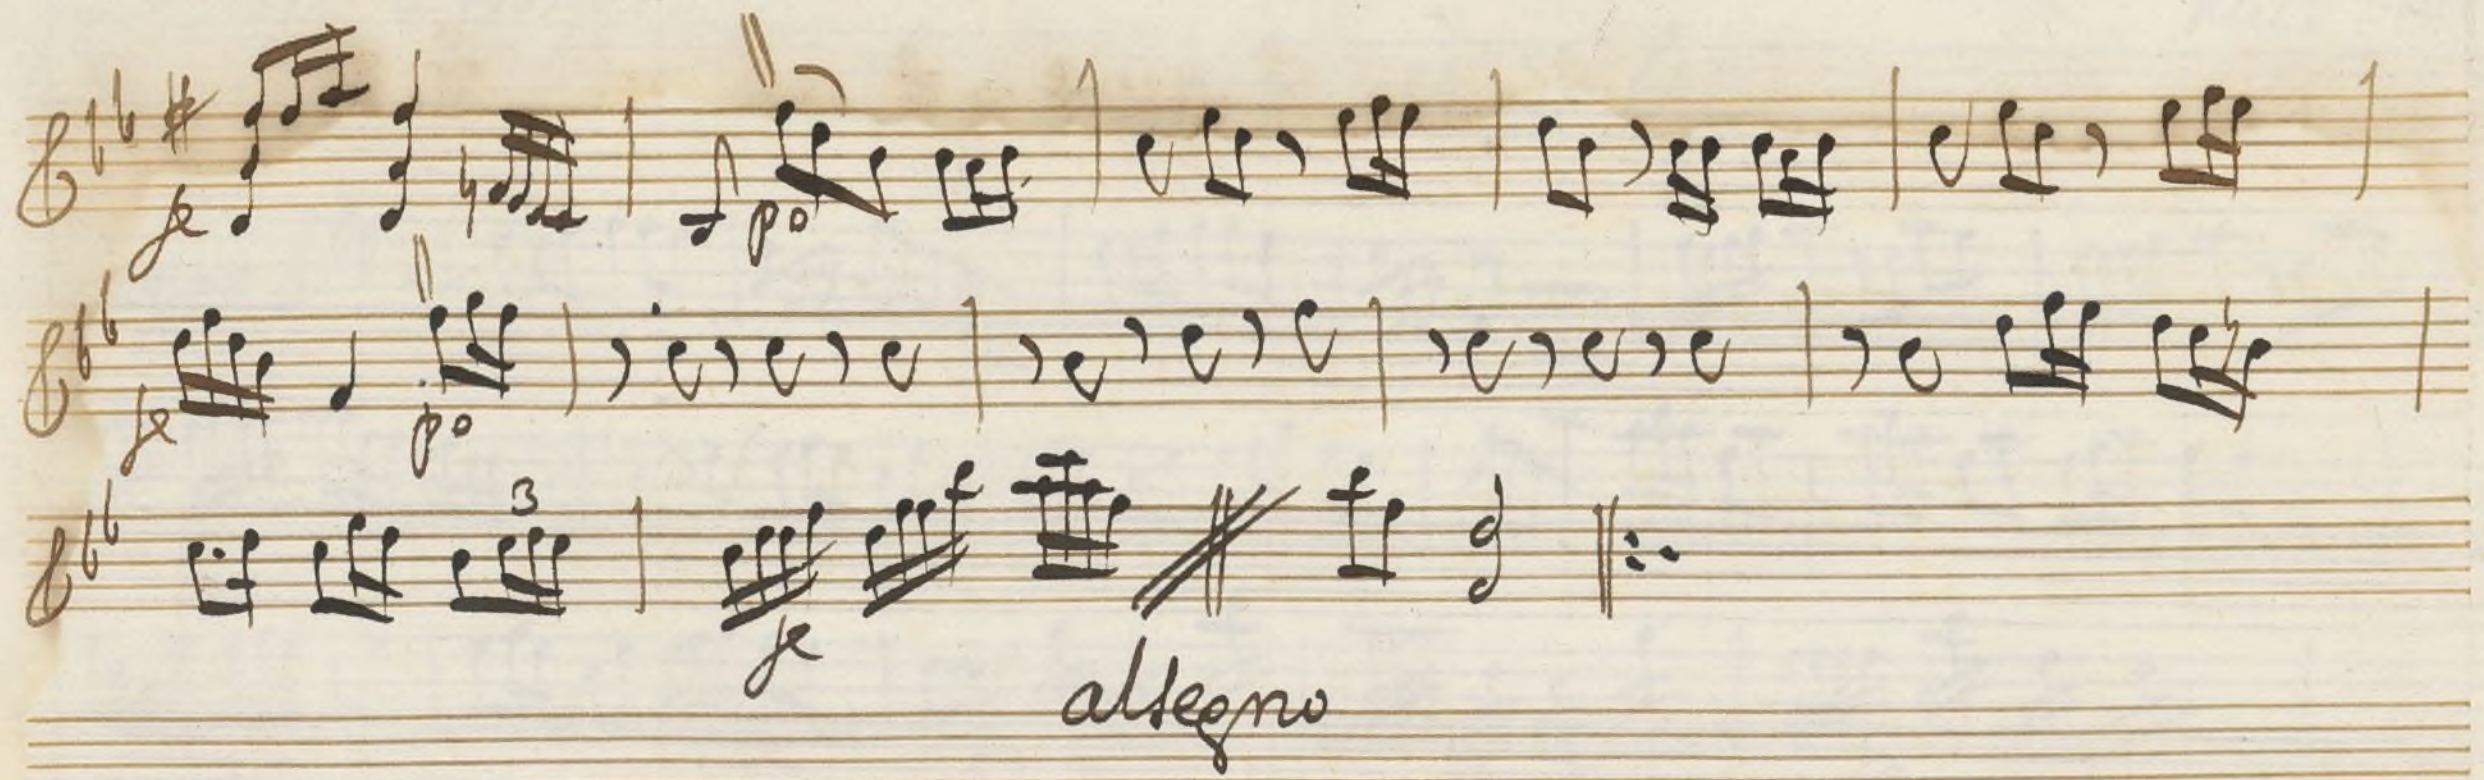 fe po
fe po
3
fe
alsegno